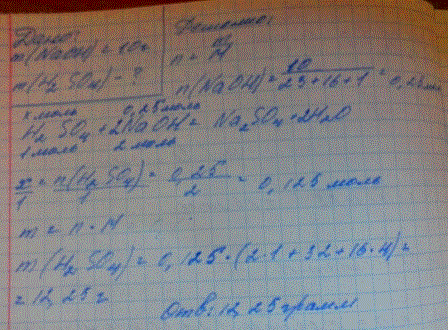 Дано:
m(NaOH) = 10г
m(H2SO4) - ?
Решение:
n = m/M
n(NaOH) = 10/23+16+1 = 0,25моль
x моль 0,25моль
H2SO4 + 2NaOH = Na2SO4 + 2H2O
1 моль 2 моль
x/1 = n(H2SO4)/1 = 0,25/2 = 0,125 моль
m = n · M
m(H2SO4) = 0,125·(2·1+32+16·4)=
= 12,25 г
Отв: 12,25 грамм